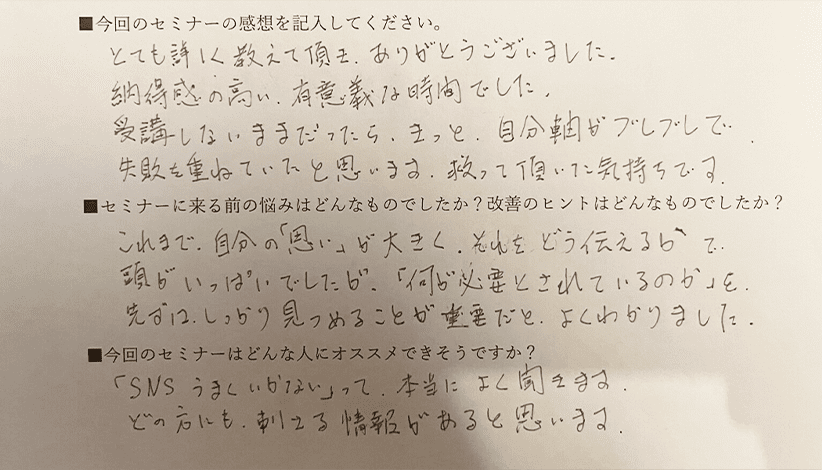 ■今回のセミナーの感想を記入してください。
とても詳しく教えて頂き、ありがとうございました。
納得感の高い、有意義な時間でした。
受講しないままだったら、きっと、自分軸がブレブレで
失敗を重ねていたと思います。救って頂いた気持ちです。
■セミナーに来る前の悩みはどんなものでしたか？改善のヒントはどんなものでしたか？
これまで、自分の「思い」が大きく、それをどう伝えるかで
頭がいっぱいでしたが、「何が必要とされているのか」を、
先ずは、しっかり見つめることが重要だと、よくわかりました。
■今回のセミナーはどんな人にオススメできそうですか？
「SNSうまくいかない」って、本当によく聞きます。
どの方にも、刺さる情報があると思います。